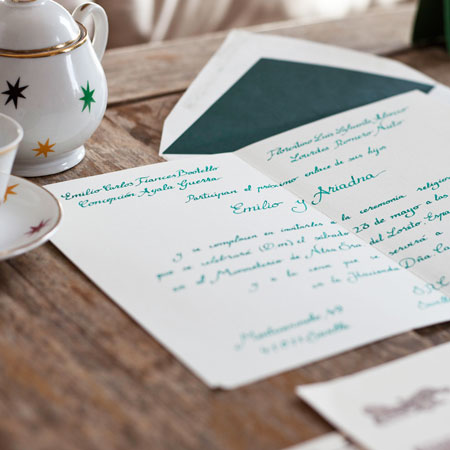 Emilio Carlos Fiances Bastello
Concepción Ayala Guerra
Florentino Luis Lafuente
Lourdes Romero
Participan el próximo enlace de sus hijos
Emilio y Ariadna
y se complacen en invitarles a la ceremonia religio
que se celebrará (D.m) el sábado 28 de mayo a las
en el Monasterio de Ntra Sra del Loreto, Espa
y a la cena que se servirá a
en la Hacienda Dña Ca
S.R.C.
49
Sevilla